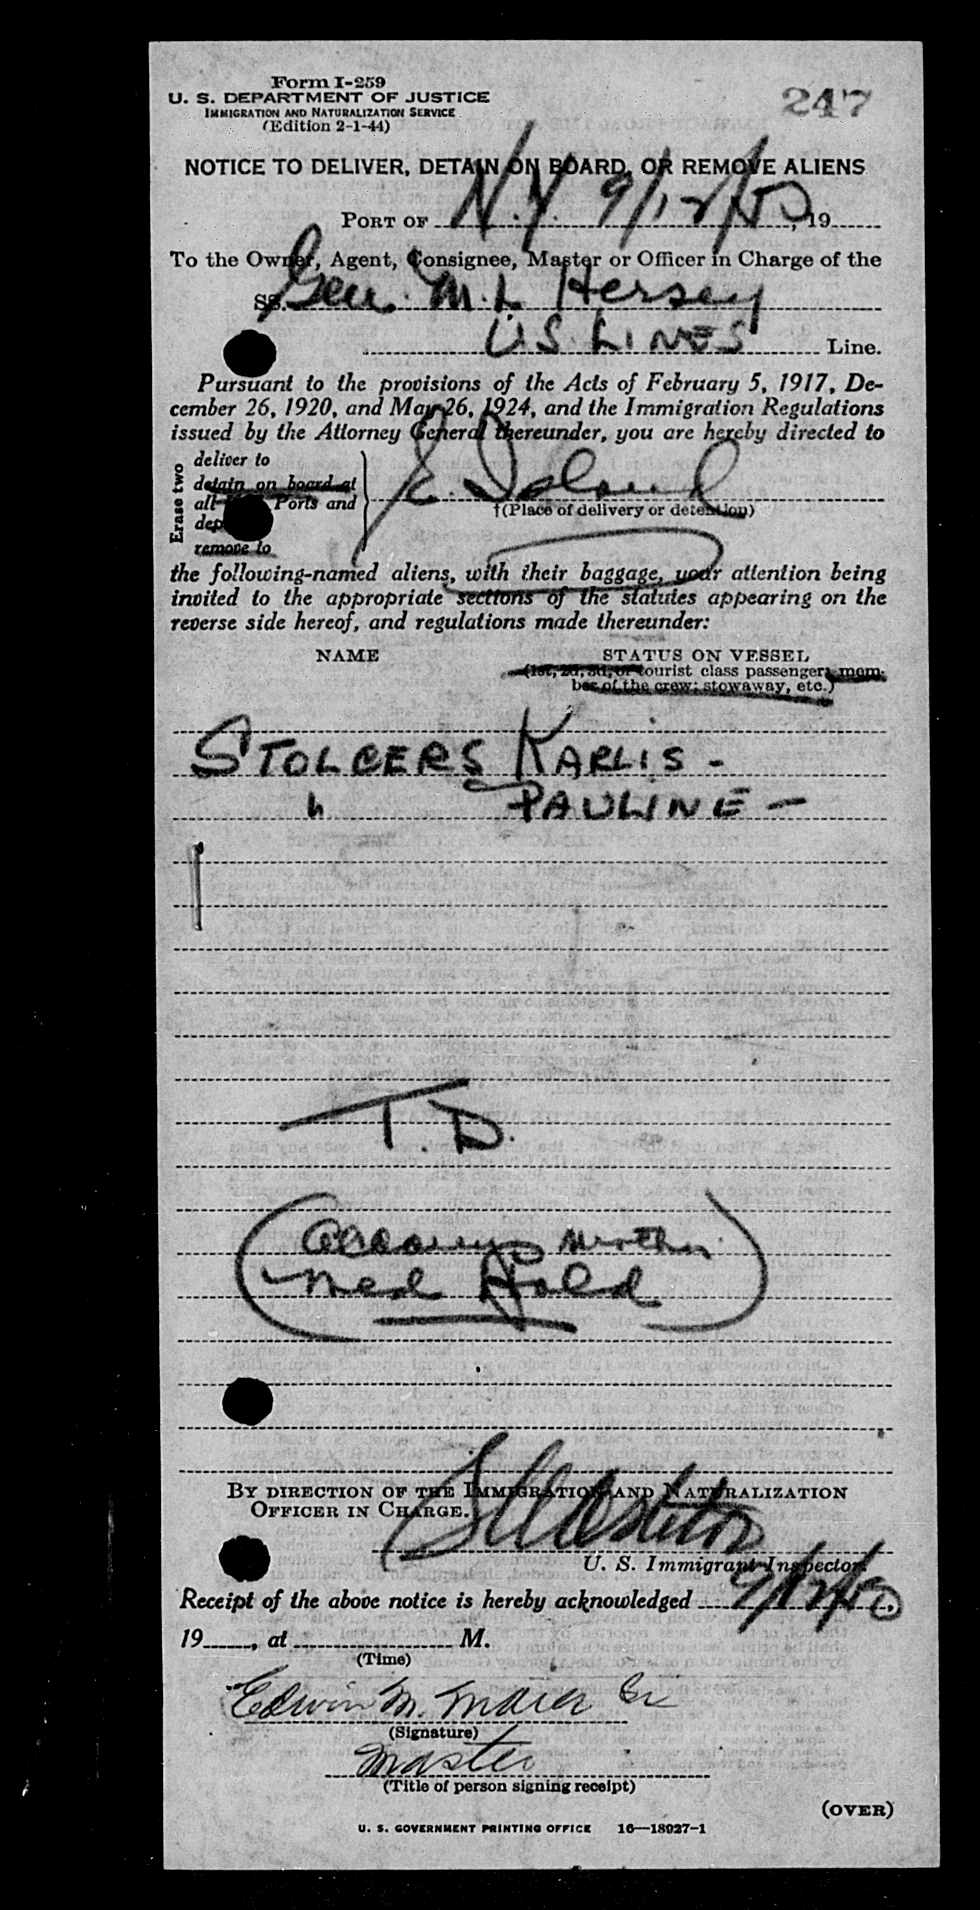 Form I-259
U. S. DEPARTMENT OF JUSTICE
IMMIGRATION AND NATURALIZATION SERVICE
(Edition 2-1-44)
247
NOTICE TO DELIVER, DETAIN ON BOARD, OR REMOVE ALIENS
PORT OF N.Y. 9/12/50, 19
To the Owner, Agent, Consignee, Master or Officer in Charge of the
SS. Gen. M. L. Hersey
U.S. LINES Line.
Pursuant to the provisions of the Acts of February 5, 1917, De-
cember 26, 1920, and May 26, 1924, and the Immigration Regulations
issued by the Attorney General thereunder, you are hereby directed to
Erase two
deliver to
detain on board at
all Ports and
dep
remove to
E. Island
†(Place of delivery or detention)
the following-named aliens, with their baggage, your attention being
invited to the appropriate sections of the statutes appearing on the
reverse side hereof, and regulations made thereunder:
NAME STATUS ON VESSEL
(1st, 2d, 3d, or tourist class passenger; mem-
ber of the crew; stowaway, etc.)
STOLCERS KARLIS -
" PAULINE -
T. D.
(Accompanying mother
Med Hold)
BY DIRECTION OF THE IMMIGRATION AND NATURALIZATION
OFFICER IN CHARGE.
U. S. Immigrant Inspector.
Receipt of the above notice is hereby acknowledged 9/12/50,
19, at M.
(Time)
Edwin M. Maier
(Signature)
Master
(Title of person signing receipt)
(OVER)
U. S. GOVERNMENT PRINTING OFFICE 16—18027-1